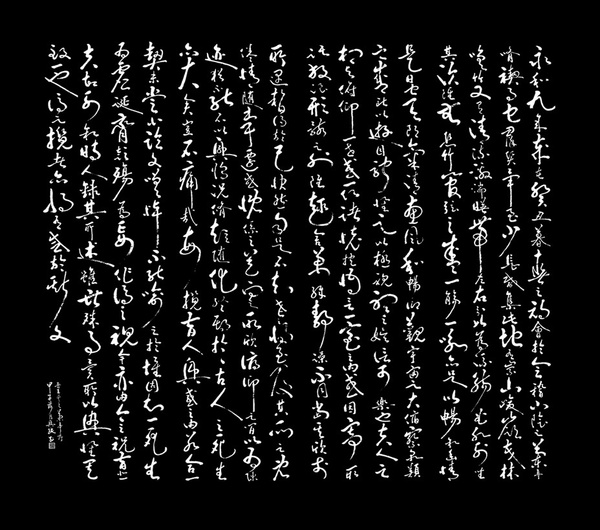 永和九年歲在癸丑暮春之初會於會稽山陰之蘭亭
脩禊事也羣賢畢至少長咸集此地有崇山峻領茂林
脩竹又有清流激湍暎帶左右引以為流觴曲水列坐
其次雖無絲竹管弦之盛一觴一詠亦足以暢敘幽情
是日也天朗氣清惠風和暢仰觀宇宙之大俯察品類
之盛所以遊目騁懷足以極視聽之娛信可樂也夫人之
相與俯仰一世或取諸懷抱悟言一室之內或因寄所
託放浪形骸之外雖趣舍萬殊靜躁不同當其欣於
所遇暫得於己快然自足不知老之將至及其所之既
惓情隨事遷感慨係之矣向之所欣俛仰之間以為陳
迹猶不能不以之興懷況脩短隨化終期於盡古人云死生
亦大矣豈不痛哉每攬昔人興感之由若合一
契未嘗不臨文嗟悼不能喻之於懷固知一死生
為虛誕齊彭殤為妄作後之視今亦由今之視昔悲
夫故列敘時人錄其所述雖世殊事異所以興懷其
致一也後之攬者亦將有感於斯文